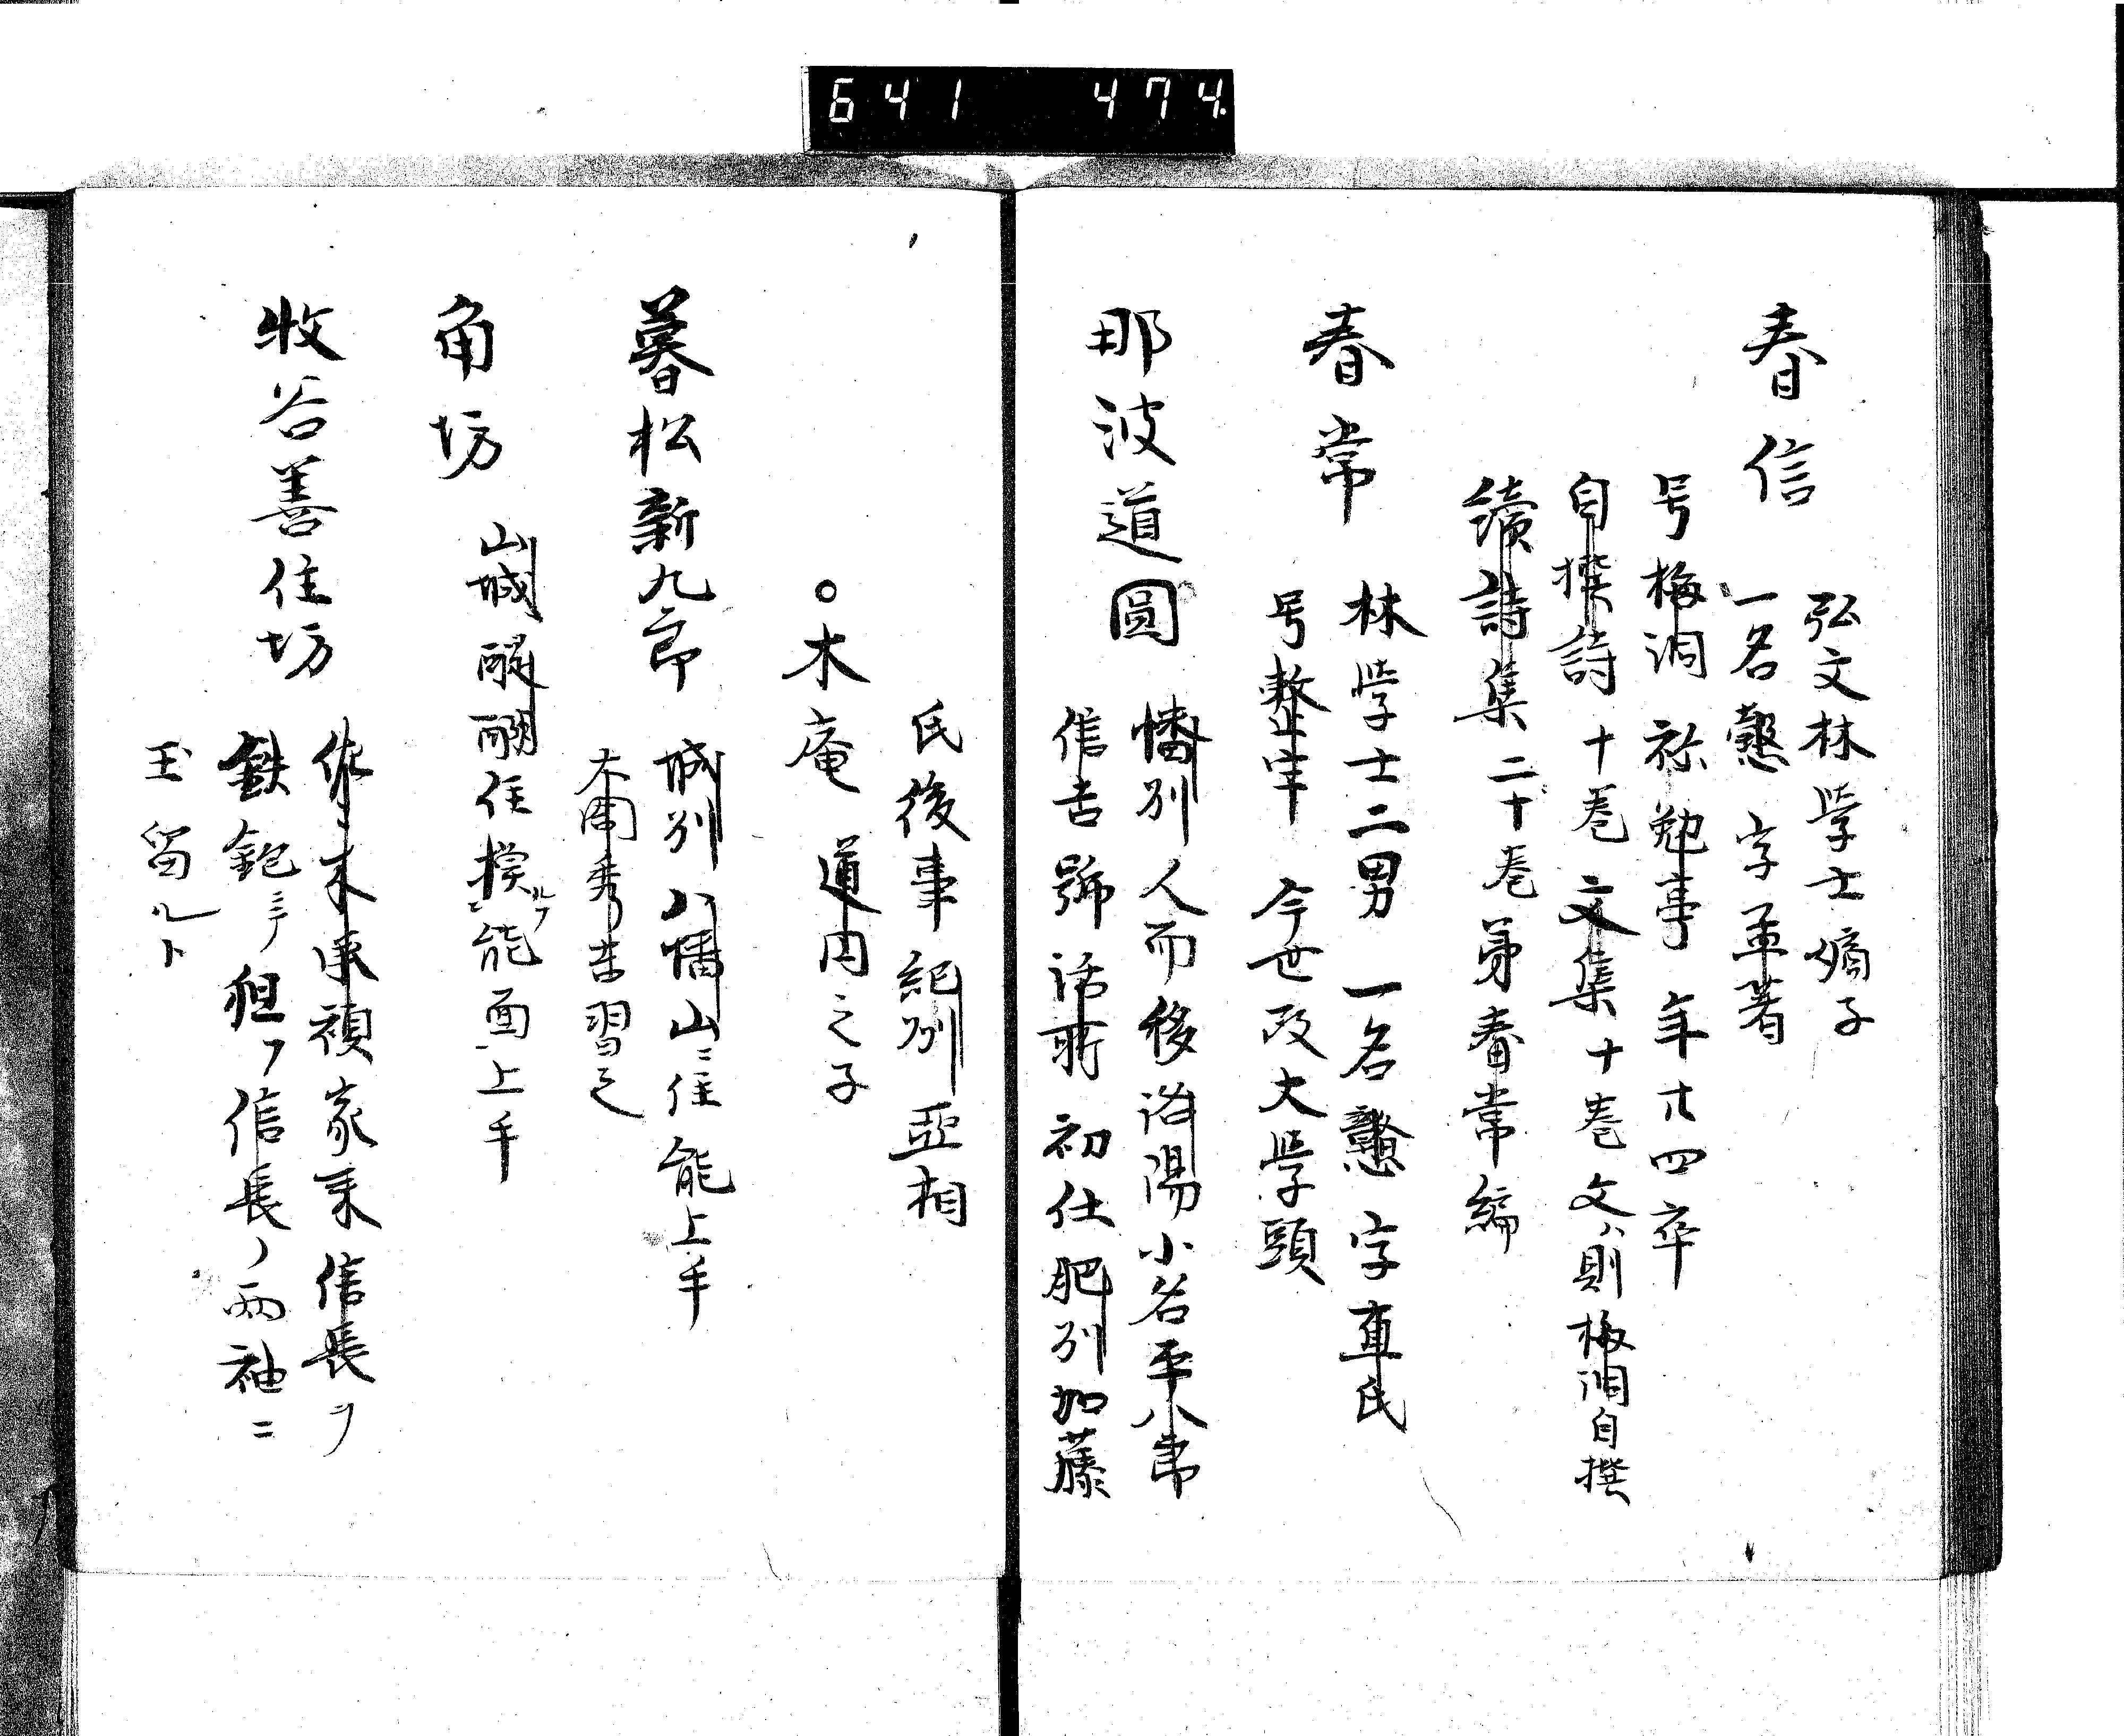 641 474.
春信
弘文林学士嫡子
一名愨字孟著
号梅洞称勉亭年廿四卒
自撰詩十巻文集十巻文ハ則梅洞自撰
續詩集二十巻弟春常編
春常
林学士二男一名戇字直民
号整宇今世改大学頭
那波道圓
播州人而後洛陽小名平八常
信吉号活所初仕肥州加藤
氏後事紀州亜相
○木庵道円之子
暮松新九郎
城州八幡山ニ住能上手
太閤秀吉習之
角坊
山城醍醐住模ルフニ能面上手
牧谷善住坊
佐々木承禎家来信長ヲ
鉄炮ニテ狙フ信長ノ両袖ニ
玉留ルト